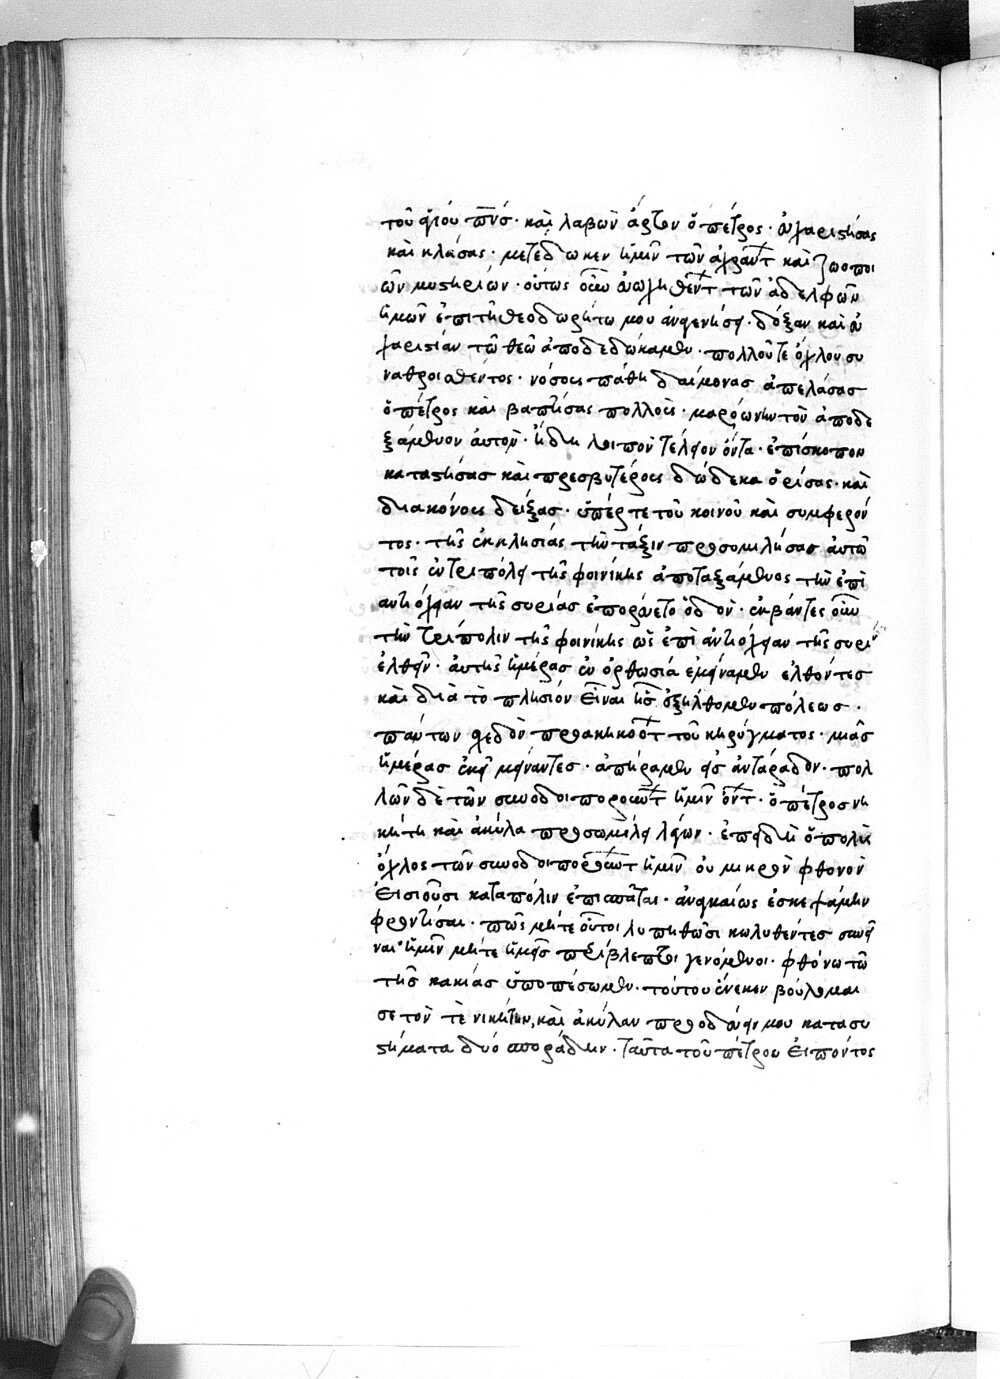 τοῦ ἁγίου πνς· καὶ λαβὼν ἄρτον ὁ πέτρος· εὐχαριστήσας
καὶ κλάσας· μετέδωκεν ἡμῖν τῶν ἀχράντ καὶ ζωοποι
ῶν μυστηρίων· οὕτως οὖν εὐωχηθέντ τῶν ἀδελφῶν
ἡμῶν ἐπὶ τῆ θεοδωρήτω μου ἀναγεννήσει· δόξαν καὶ εὐ
χαριστίαν τῶ θεῶ ἀποδεδώκαμεν· πολλοῦ τε ὄχλου συ
ναθροισθέντος· νόσοις πάθη δαίμονας ἀπελάσας
ὁ πέτρος καὶ βαπτίσας πολλοῖς· μαροώνην τὸν ἀποδε
ξάμενον αὐτὸν· ἤδη λοιπὸν τέλειον ὄντα· ἐπίσκοπον
καταστήσας καὶ πρεσβυτέροις δώδεκα ὁρίσας· καὶ
διακόνοις δείξας· ὑπέρ τε τοῦ κοινοῦ καὶ συμφερόν
τος· τῆς ἐκκλησίας τὴν τάξιν προσομιλήσας αὐτῶ
τοῖς ἐν τριπόλει τῆς φοινίκης ἀποταξάμενος τὴν ἐπὶ
ἀντιόχειαν τῆς συρίας ἐπορεύετο ὁδὸν· ἐκβάντες οὖν
τὴν τρίπολιν τῆς φοινίκης ὡς ἐπὶ ἀντιόχειαν τῆς συρί
ἐλθεῖν· αὐτῆς ἡμέρας ἐν ὀρθωσία ἐμείναμεν ἐλθόντες
καὶ διὰ τὸ πλησίον εἶναι ἧς ἐξήλθομεν πόλεως·
πάντων σχεδὸν προακηκοότ τοῦ κηρύγματος· μιᾶς
ἡμέρας ἐκεῖ μείναντες· ἀπήραμεν εἰς ἀντάραδον· πολ
λῶν δὲ τῶν συνοδοιπορούντ ἡμῖν ὄντ· ὁ πέτρος νι
κήτη καὶ ἀκύλα προσωμίλει λέγων· ἐπειδὴ ὁ πολὺς
ὄχλος τῶν συνοδοιπορούντ ἡμῖν οὐ μικρὸν φθόνον
εἰσιοῦσι κατὰ πόλιν ἐπισπᾶται· ἀναγκαίως ἐσκεψάμην
φροντίσαι· πῶς μήτε οὗτοι λυπηθῶσι κωλυθέντες συνεῖ
ναι ἡμῖν μήτε ἡμεῖς περίβλεπτοι γενόμενοι· φθόνω τῶ
τῆς κακίας ὑποπέσωμεν· τούτου ἕνεκεν βούλομαι
σε τὸν τὲ νικήτην, καὶ ἀκύλαν προοδεύειν μου κατὰ συ
στήματα δύο σποράδην· ταῦτα τοῦ πέτρου εἰπόντος